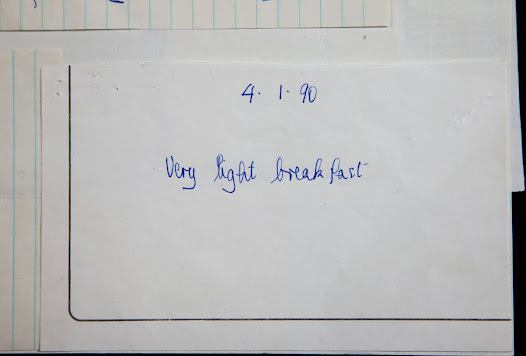 4. 1. 90
Very light breakfast